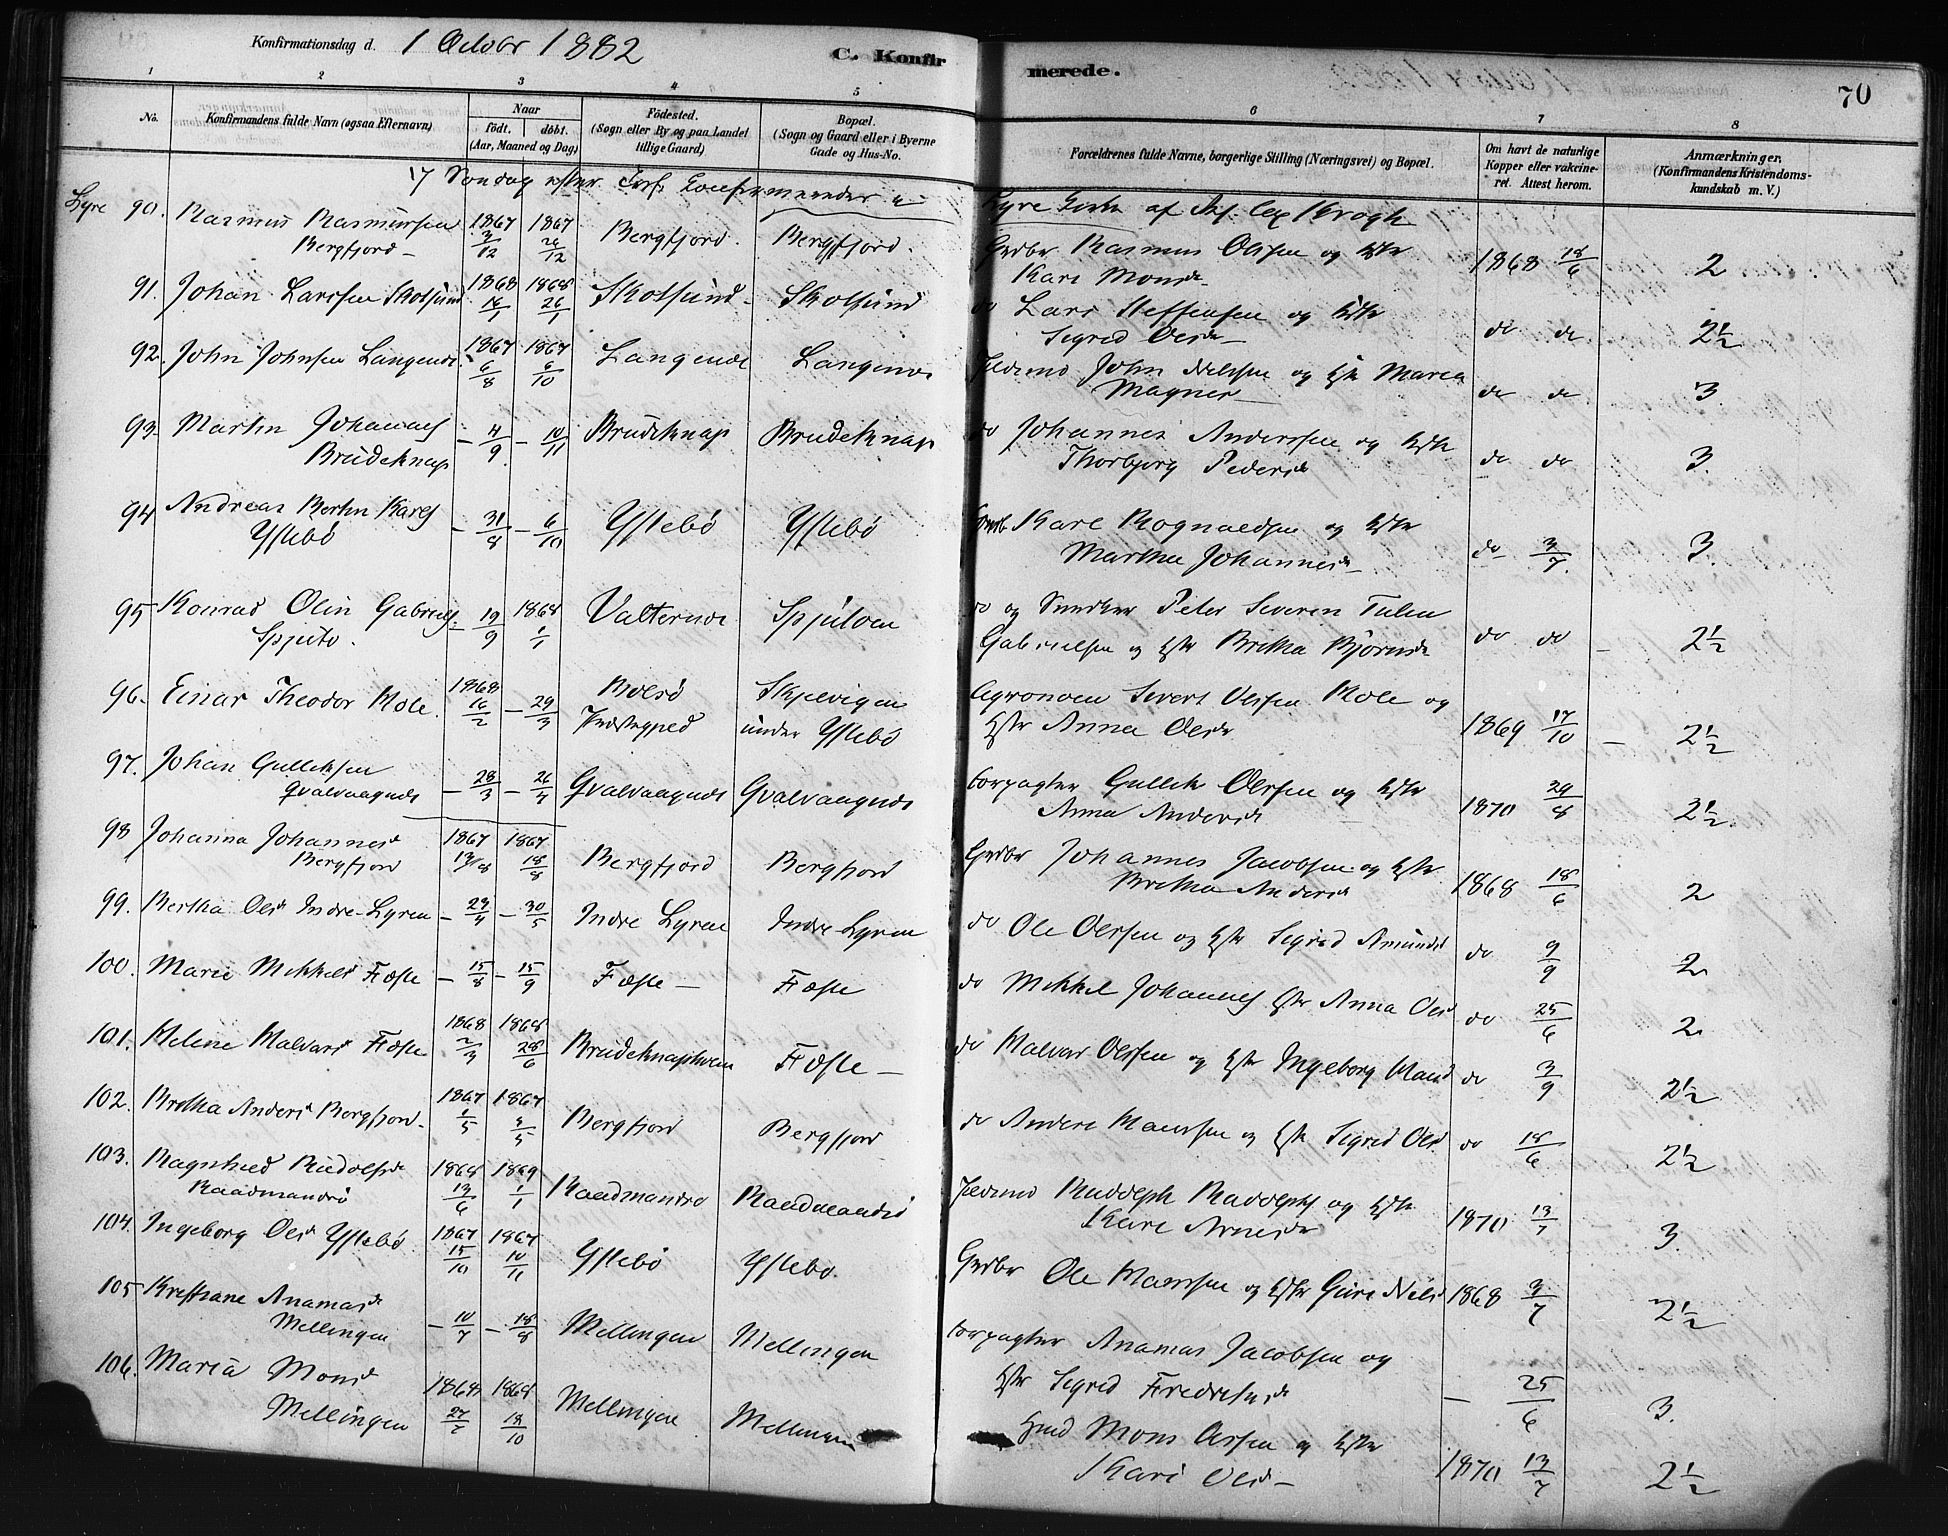 Konfirmationsdag d. 1 October 1882
C. Konfirmerede.
70
1 2 3 4 5 6 7 8
No.
Konfirmandens fulde Navn (ogsaa Efternavn)
Naar
født. døbt.
(Aar, Maaned og Dag)
Fødested.
(Sogn eller By og paa Landet tillige Gaard)
Bopæl.
(Sogn og Gaard eller i Byerne Gade og Hus-No.
Forældrenes fulde Navne, borgerlige Stilling (Næringsvei) og Bopæl.
Om havt de naturlige Kopper eller vakcineret. Attest herom.
Anmærkninger.
(Konfirmandens Kristendomskundskab m. V.)
17 Søndag efter
Lyre Kirke af
Lyre 90. Rasmus Rasmussen Bergfjord 1867 3/12 1867 26/12 Bergfjord. Bergfjord. Gbr Rasmus Olssen og Hstr Kari Monsd 1868 18/6 2
91. Johan Larssen Skotsund 1868 1868 26/1 Skotsund Skotsund do Lars Steffensen og Hstr Sigrid Olsd do do 2½
92. John Johnsen Langenes 1867 6/8 1867 6/10 Langenes Langenes John Nilssen og Hstr Maria Magnes do do 3.
93. Martin Johannes Brudeknap 4/9 10/11 Brudeknap Brudeknap do Johannes Anderssen og Hstr Thorbjørg Pedersd do do 3.
94 Andreas Bertin Kares Ystebø 31/8 6/10 Ystebø Ystebø Kare Rognaldsen og Hstr Martha Johannesd do 3/7. 3.
95 Konrad Olin Gabriels Spjuto. 19/9 1868 1/1 Valternes Spjutøen do og Snedker Peter Severin Tulin Gabrielsen og Hstr Britha Bjørnsd do do 2½
96. Einar Theodor Mole 1868 16/2 29/3 Bolsø Præstegjeld Skjelvigen under Ystebø Agronom Sivert Olssen Mole og Hstr Anna Olsd 1869 17/10 2½
97. Johan Gulliksen Gvalvaagnes 28/3 26/4 Gvalvaagnes Gvalvaagnes Forpagter Gullik Olssen og Hstr Anna Andersd 1870 29/8 2½.
98 Johanna Johannesd Bergfjord 1867 1867 18/8 Bergfjord Bergfjord Gbr Johannes Jacobsen og Hstr Britha Andersd 1868 18/6 2
99. Bertha Olsd Indre-Lyren 29/4 30/5 Indre Lyren Indre Lyren do Ole Olssen og Hstr Sigrid Amunds do 9/9 2
100. Marie Mikkelsd Fæste 15/8 15/9 Fæste Fæste do Mikkel Johannes Hstr Anna Olsd do 25/6 2
101. Helene Halvarsd Fæste 1868 2/3 1868 28/6 Brudeknaphavn Fæste do Halvar Olssen og Hstr Ingeborg Hansd do 3/9 2½
102. Britha Andersd Bergfjord 1867 1/5 1867 Bergfjord Bergfjord do Anders Hanssen og Hstr Sigrid Olsd do 18/6 2½
103. Ragnhild Rudolfsd Raadmandsø 1868 13/6 1869 1/1 Raadmandsø Raadmandsø Rudolph Rudolphs og Hstr Kari Arnesd 1870 13/7 3.
104. Ingeborg Olsd Ystebø 1867 15/10 1867 10/11 Ystebø Ystebø. Gbr Ole Hanssen og Hstr Guri Nilsd 1868 3/7 2½
105 Kristiane Anamasd Mellingen 10/7 18/8 Mellingen Mellingen Forpagter Anamas Jacobsen og Hstr Sigrid Fredriksd 25/6 3.
106. Maria Monsd Mellingen 1868 27/7 1868 18/10 Mellingen Mellingen Mons Olssen og Hstr Kari Olsd 1870 13/7 2½